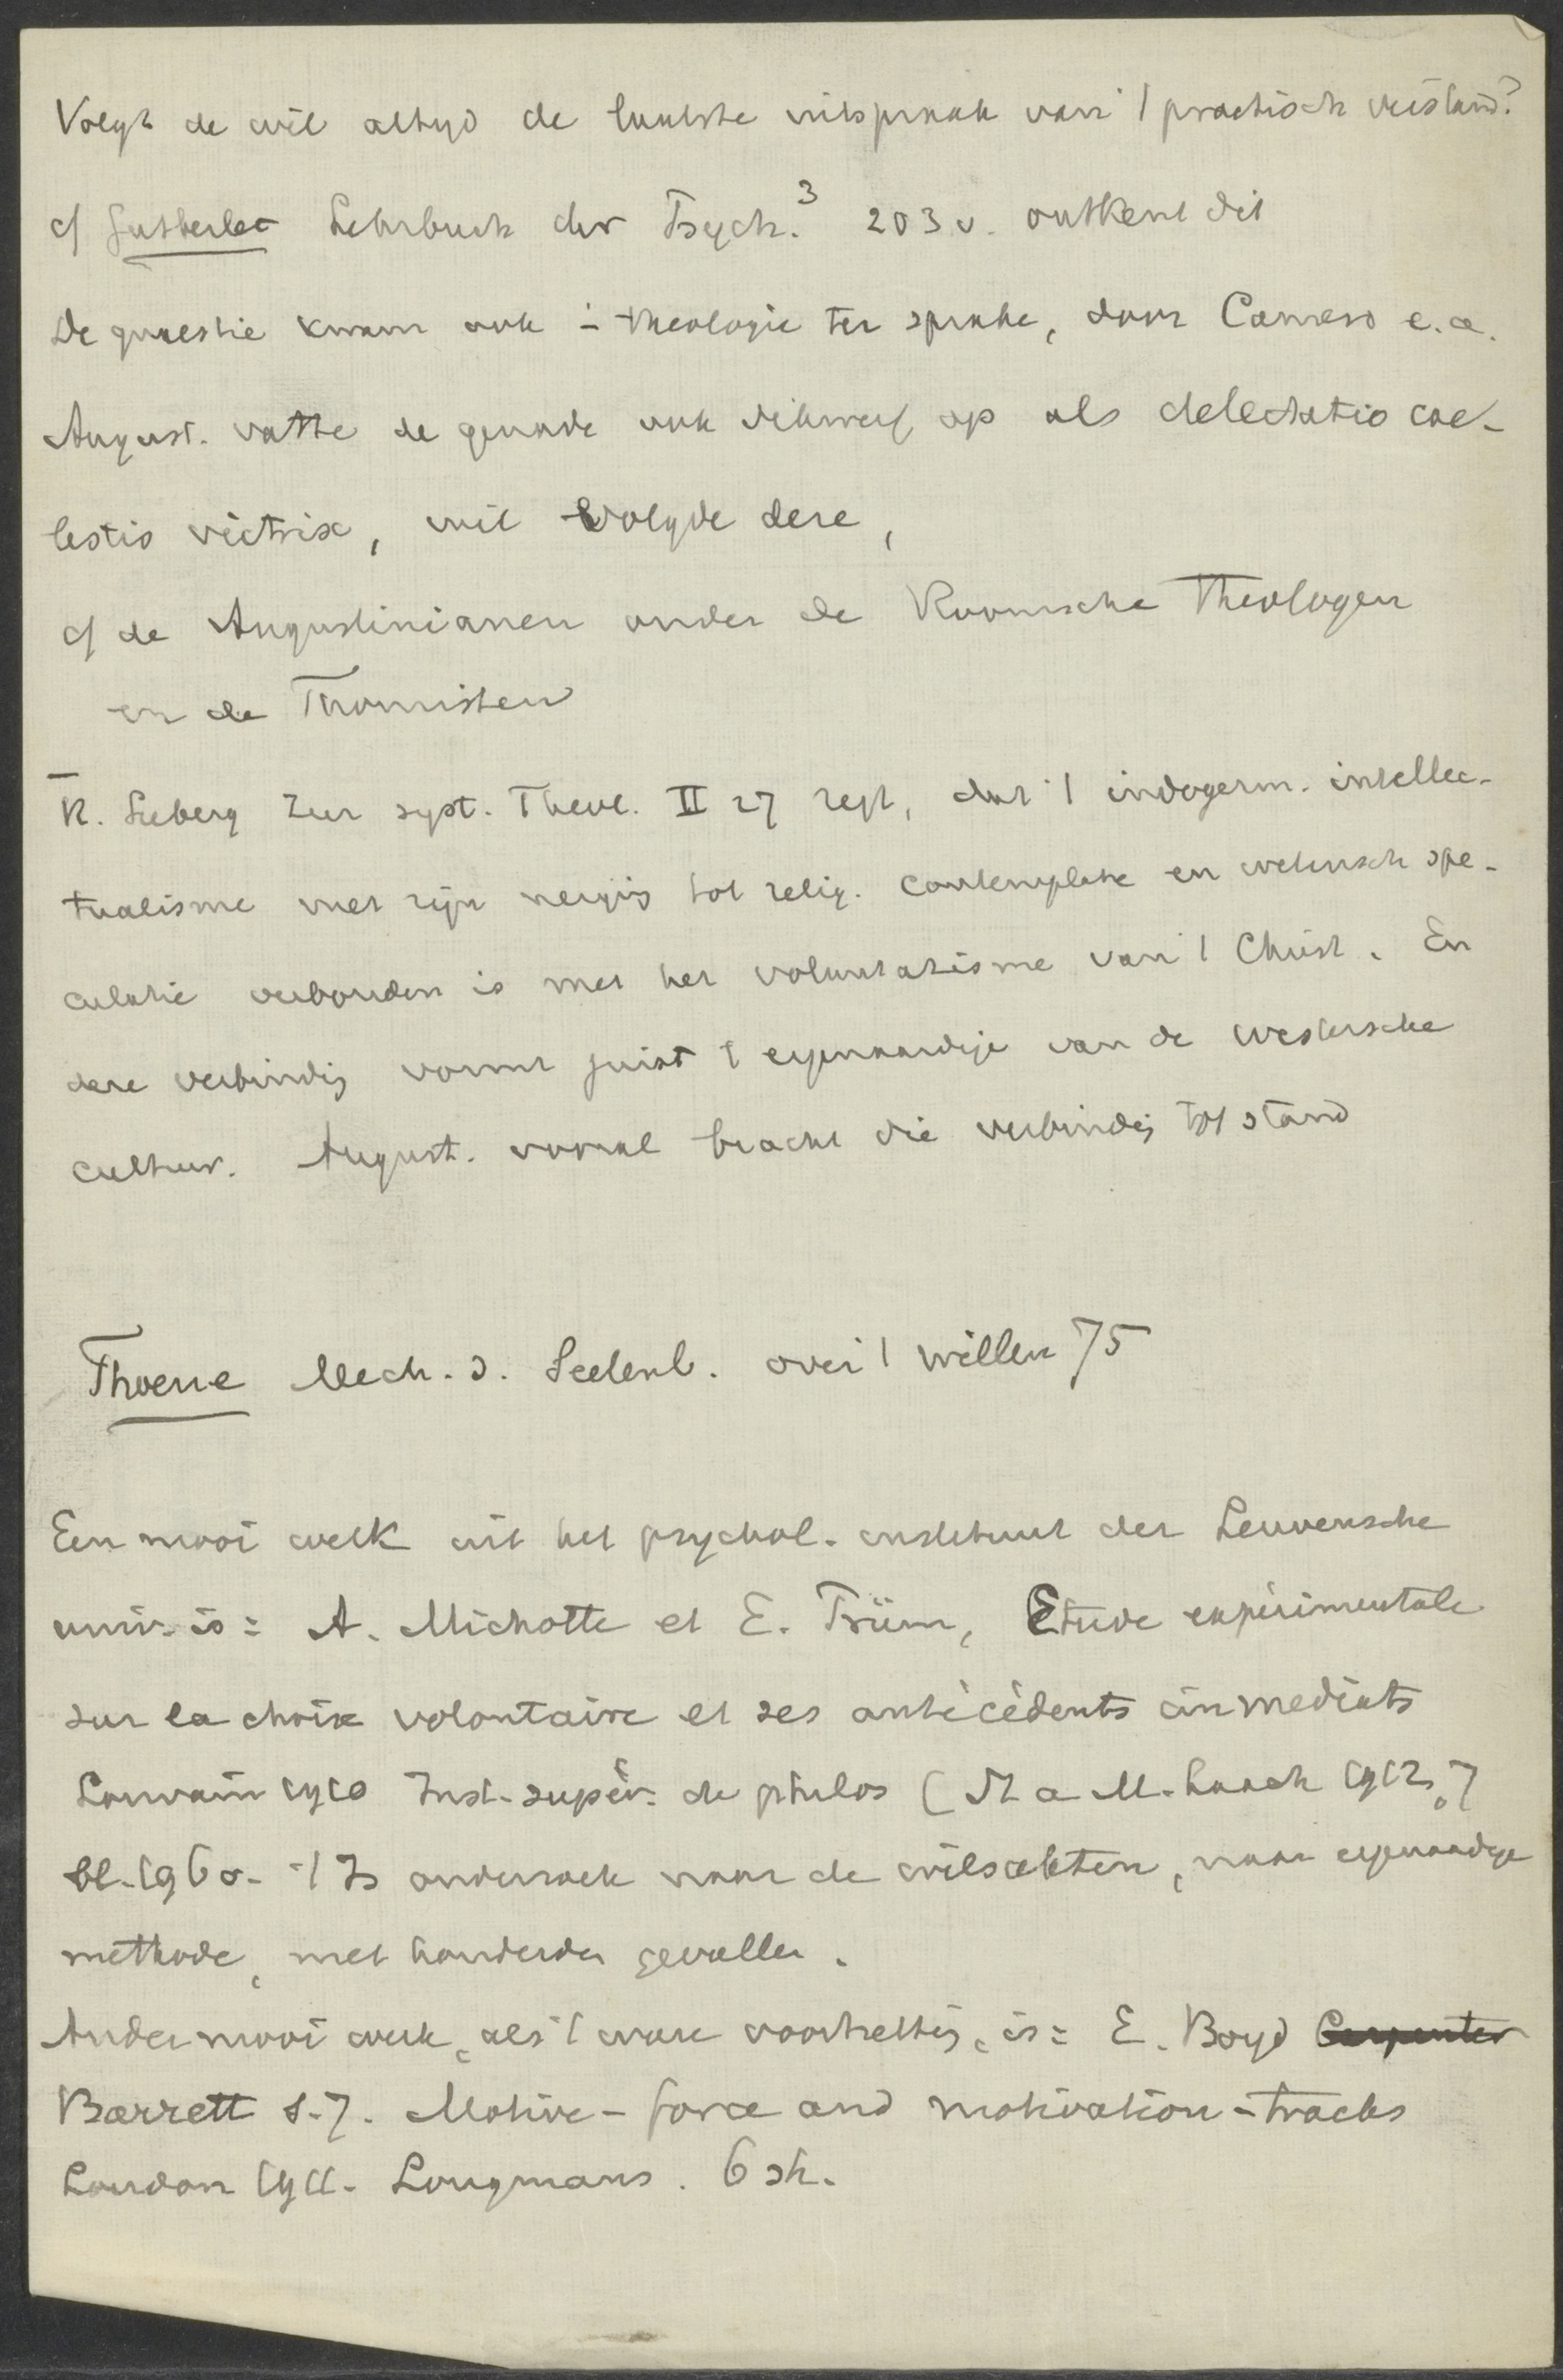 Volgt de wil altijd de laatste uitspraak van 't practisch verstand?
cf Gutberlet Lehrbuch der Psych.³ 203 v. ontkent dit
De quaestie kwam ook i. theologie ter sprake, door Camero e.a.
August. vatte de genade ook dikwerf op als delectatio cae-
lestis victrix, wil volgde deze,
cf de Augustinianen onder de Roomsche Theologen
en de Thomisten
R. Seeberg Zur syst. Theol. II 27 zegt, dat 't indogerm. intellec-
tualisme met zijn neiging tot relig. contemplatie en wetensch spe-
culatie verbonden is met het voluntarisme van 't Christ. En
deze verbinding vormt juist 't eigenaardige van de westersche
cultuur. August. vooral bracht die verbinding tot stand
Mech. d. Seelenl. over 't willen 75
Een mooi werk uit het psychol. instituut der Leuvensche
univ. is: A. Michotte et E. Prüm, Etude expérimentale
sur la choix volontaire et ses antécédents immediats
Louvain 1910 Inst. supér. de philos ( St a M. Laach 1912,7
bl. 196 v. 't Is onderzoek naar de wilsakten, naar eigenaardige
methode, met honderden gevallen.
Ander mooi werk, als 't ware voortzetting, is: E. Boyd Carpenter
Barrett S.J. Motive-force and motivation-tracks
London 1911. Longmans. 6 sh.